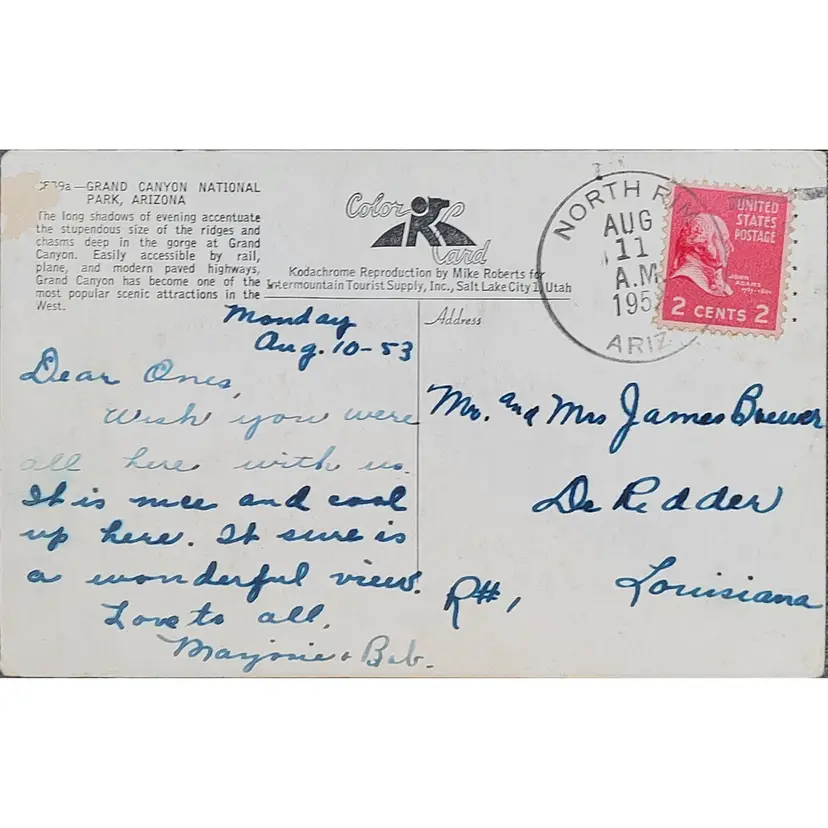 —GRAND CANYON NATIONAL
PARK, ARIZONA
The long shadows of evening accentuate
the stupendous size of the ridges and
chasms deep in the gorge at Grand
Canyon. Easily accessible by rail,
plane, and modern paved highways,
Grand Canyon has become one of the
most popular scenic attractions in the
West.
Color
Card
Kodachrome Reproduction by Mike Roberts for
Intermountain Tourist Supply, Inc., Salt Lake City 1, Utah
NORTH RIM
AUG
11
A.M
195
ARIZ
UNITED
STATES
POSTAGE
JOHN
ADAMS
2 CENTS 2
Monday
Aug. 10-53
Dear Ones,
Wish you were
all here with us.
It is nice and cool
up here. It sure is
a wonderful view.
Love to all,
Marjorie & Bob.
Address
Mr. and Mrs James Brewer
De Ridder
R#1
Louisiana